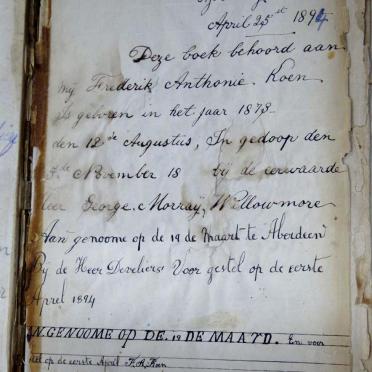 April 25st 1894
Deze boek behoord aan
mij Frederik Anthonie. Koen
als geboren in het jaar 1873
den 12de Augustus, In gedoop den
de November 18 bij de eerwaarde
Heer George. Morray, Willowmore
Aan genoome op de 19 de Maart te Aberdeen
By de Heer Develiers Voor gestel op de eerste
Aprel 1894
AN.GENOOME OP DE. 19 DE MAATD. En voor
stel op de eerste April F.A. Koen